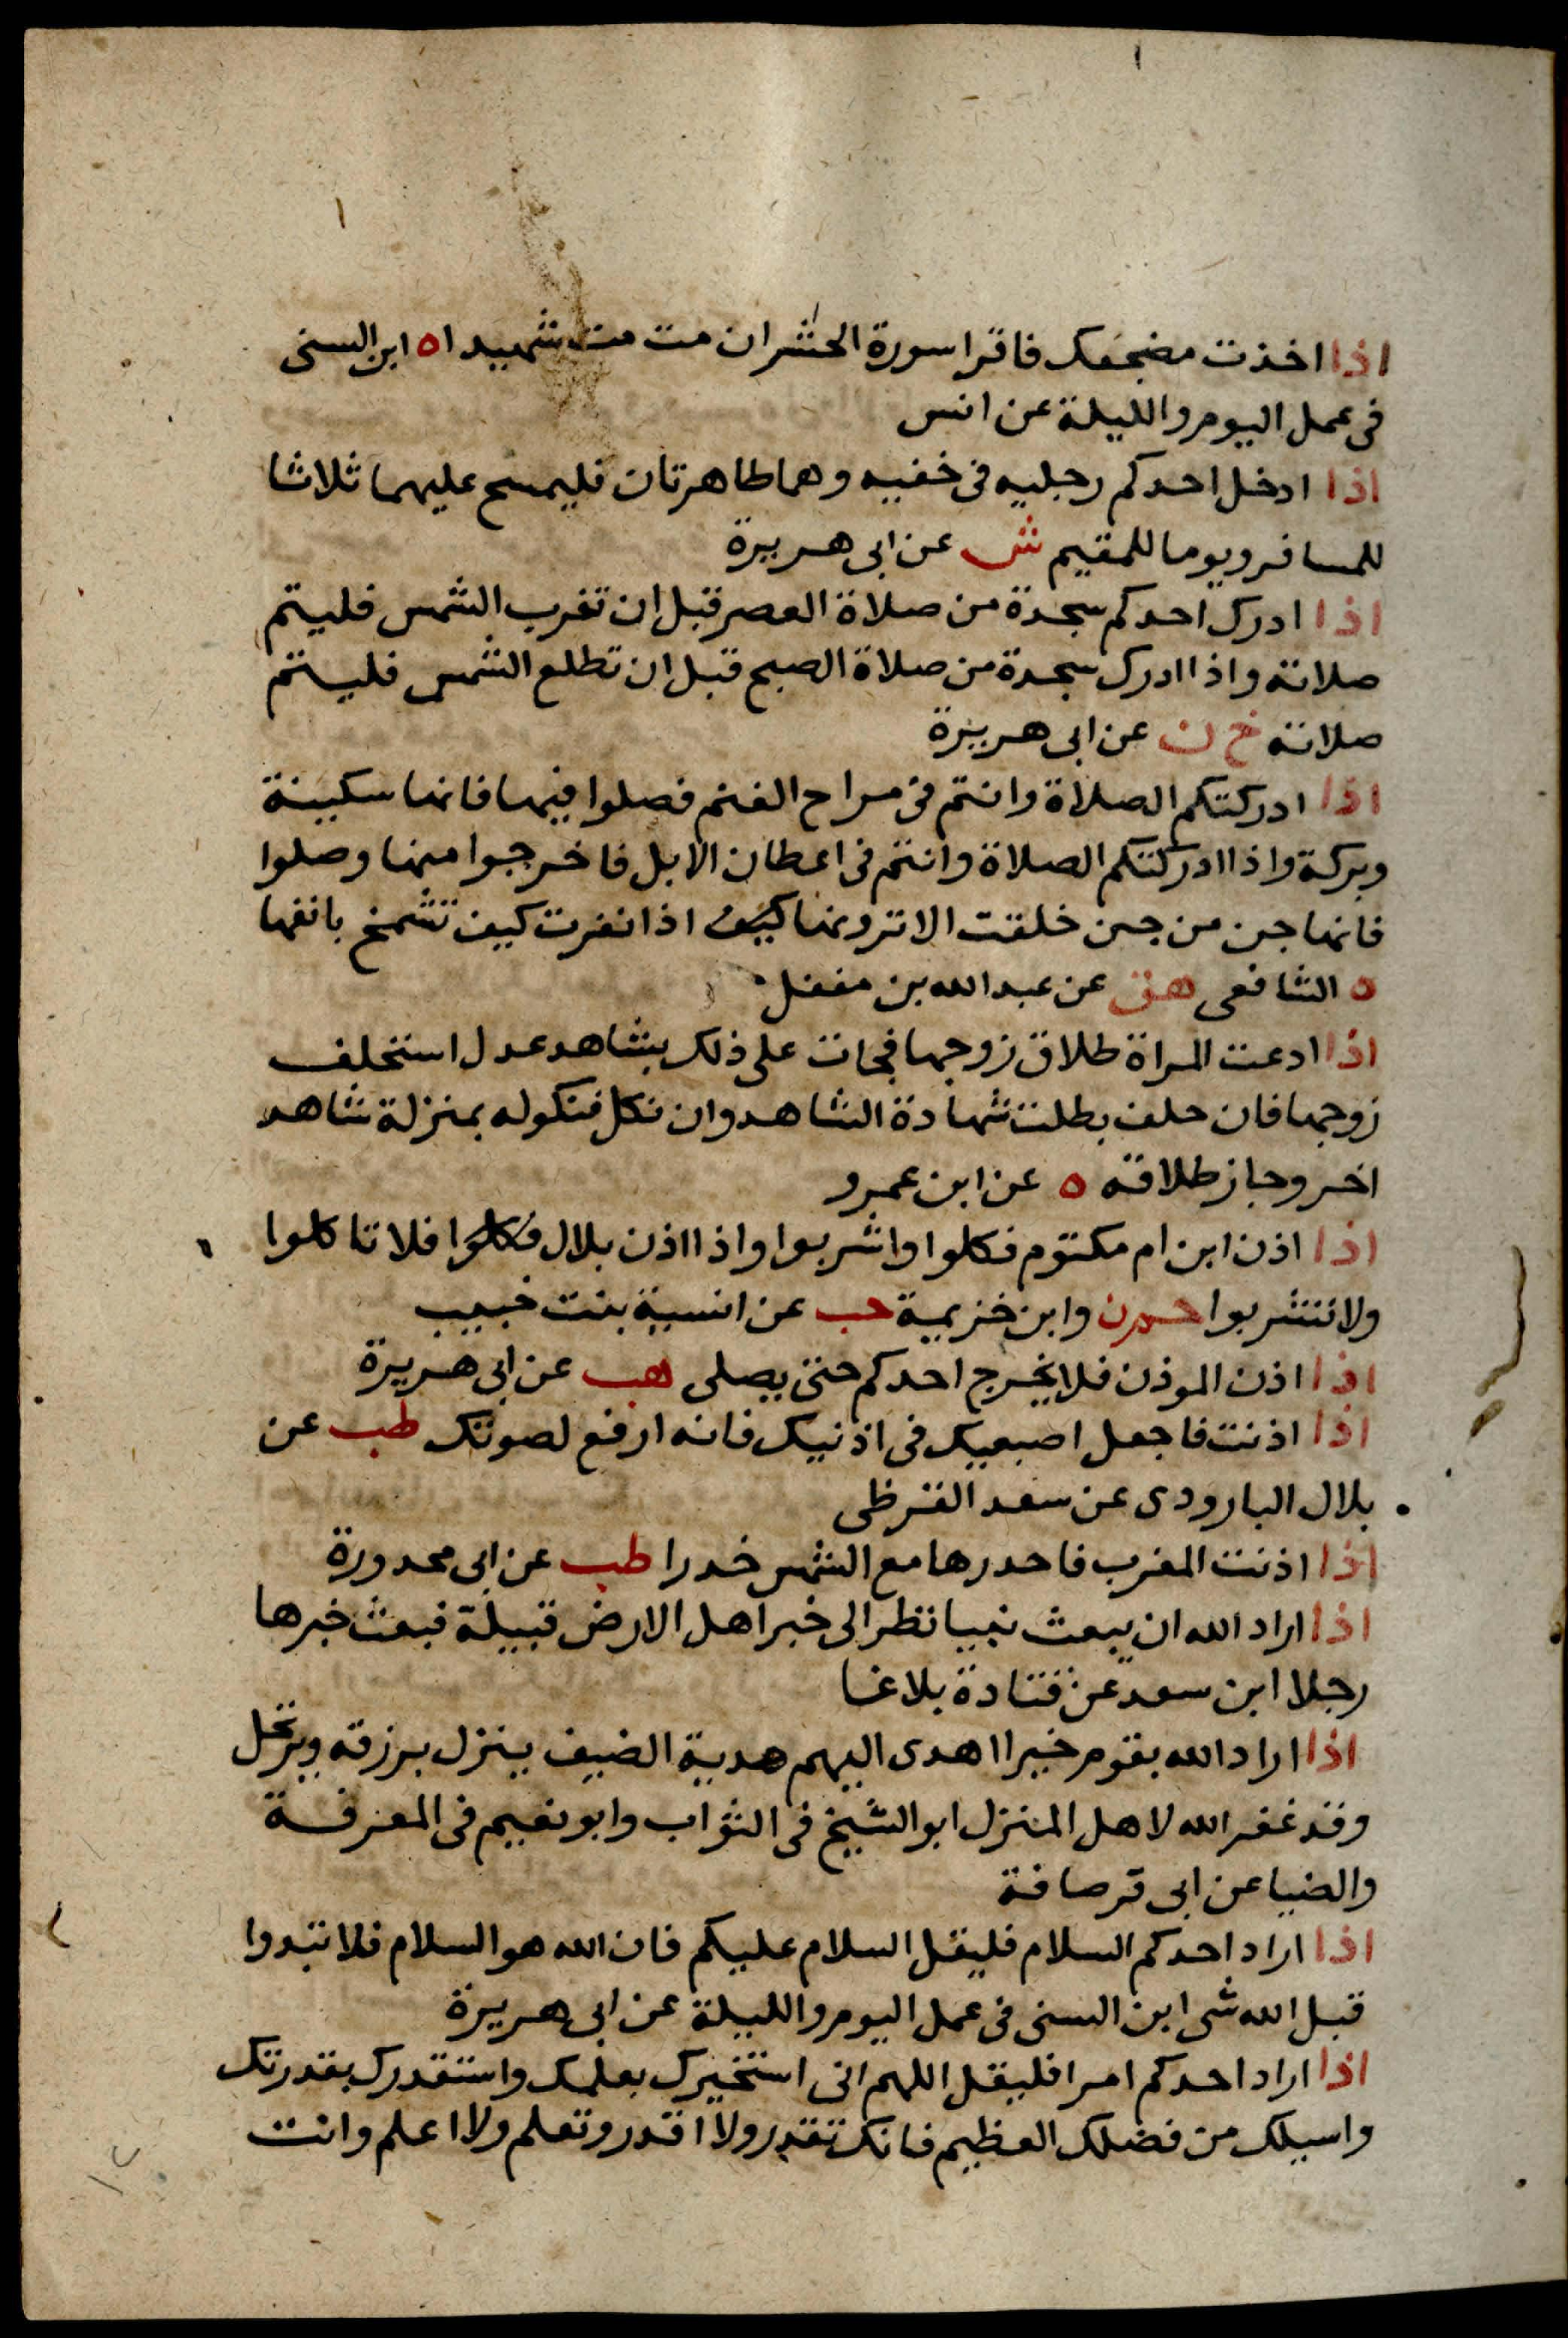 اذا اخذت مضجعك فاقرا سورة الحشر ان مت مت شهيدا ه ابن السنى
فى عمل اليوم والليلة عن انس
اذا ادخل احدكم رجليه فى خفيه وهما طاهرتان فليمسح عليهما ثلاثا
للمسافر ويوما للمقيم ش عن ابى هريرة
اذا ادرك احدكم سجدة من صلاة العصر قبل ان تغرب الشمس فليتم
صلاته واذا ادرك سجدة من صلاة الصبح قبل ان تطلع الشمس فليتم
صلاته خ ن عن ابى هريرة
اذا ادركتكم الصلاة وانتم فى مراح الغنم فصلوا فيها فانها سكينة
وبركة واذا ادركتكم الصلاة وانتم فى اعطان الابل فاخرجوا منها وصلوا
فانها جن من جن خلقت الا ترونها كيف اذا نفرت كيف تشمخ بانفها
ه الشافعى هق عن عبد الله بن مغفل
اذا ادعت المراة طلاق زوجها فجات على ذلك بشاهد عدل استحلف
زوجها فان حلف بطلت شهادة الشاهد وان نكل فنكوله بمنزلة شاهد
اخر وجاز طلاقه ه عن ابن عمرو
اذا اذن ابن ام مكتوم فكلوا واشربوا واذا اذن بلال فكلوا فلا تاكلوا
ولا تشربوا حم ن وابن خزيمة حب عن انسية بنت خبيب
اذا اذن الموذن فلا يخرج احدكم حتى يصلى هب عن ابى هريرة
اذا اذنت فاجعل اصبعيك فى اذنيك فانه ارفع لصوتك طب عن
بلال البارودى عن سعد القرظى
اذا اذنت المغرب فاحدرها مع الشمس خدرا طب عن ابى محدورة
اذا اراد الله ان يبعث نبيا نظر الى خير اهل الارض قبيلة فبعث خيرها
رجلا ابن سعد عن قتادة بلاغا
اذا اراد الله بقوم خيرا اهدى اليهم هدية الضيف ينزل برزقه ويرتحل
وقد غفر الله لاهل المنزل ابو الشيخ فى الثواب وابو نعيم فى المعرفة
والضيا عن ابى قرصافة
اذا اراد احدكم السلام فليقل السلام عليكم فان الله هو السلام فلا تبدوا
قبل الله شى ابن السنى فى عمل اليوم والليلة عن ابى هريرة
اذا اراد احدكم امرا فليقل اللهم انى استخيرك بعلمك واستقدرك بقدرتك
واسيلك من فضلك العظيم فانك تقدر ولا اقدر وتعلم ولا اعلم وانت